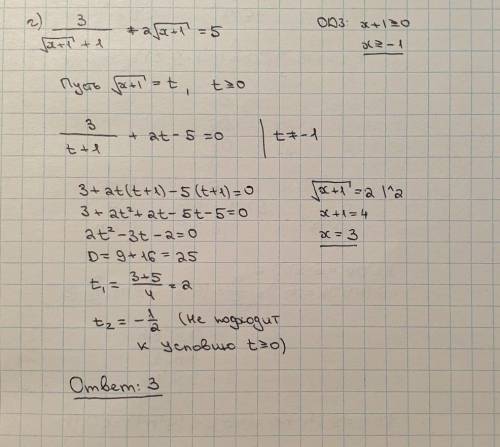 г) 3/(√(x+1) + 1) + 2√(x+1) = 5
ОДЗ: x+1≥0
x≥-1
Пусть √(x+1) = t, t≥0
3/(t+1) + 2t - 5 = 0 | t≠-1
3+2t(t+1)-5(t+1)=0
3+2t²+2t-5t-5=0
2t²-3t-2=0
D=9+16=25
t₁ = (3+5)/4 = 2
t₂ = -1/2 (не подходит
к условию t≥0)
√(x+1) = 2 |^2
x+1=4
x=3
Ответ: 3